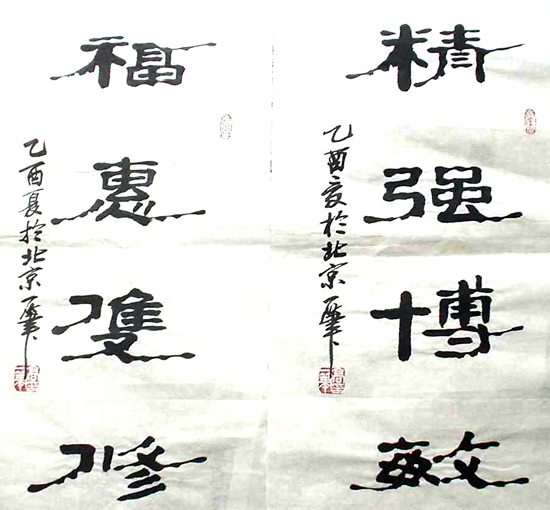 精强博敏
乙酉夏於北京
福惠雙修
乙酉夏於北京